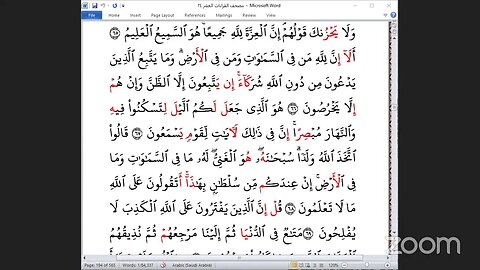 مصحف القراءات العشر ٦٤ - Microsoft Word
File Home Insert Page Layout References Mailings Review View Add-Ins
وَلَا يَحْزُنكَ قَوْلُهُمْ إِنَّ الْعِزَّةَ لِلَّهِ جَمِيعًا هُوَ السَّمِيعُ الْعَلِيمُ ٦٥
أَلَا إِنَّ لِلَّهِ مَن فِي السَّمَاوَاتِ وَمَن فِي الْأَرْضِ وَمَا يَتَّبِعُ الَّذِينَ
يَدْعُونَ مِن دُونِ اللَّهِ شُرَكَاءَ إِن يَتَّبِعُونَ إِلَّا الظَّنَّ وَإِنْ هُمْ
إِلَّا يَخْرُصُونَ ٦٦ هُوَ الَّذِي جَعَلَ لَكُمُ الَّيْلَ لِتَسْكُنُوا فِيهِ
وَالنَّهَارَ مُبْصِرًا إِنَّ فِي ذَٰلِكَ لَآيَاتٍ لِّقَوْمٍ يَسْمَعُونَ ٦٧ قَالُوا
اتَّخَذَ اللَّهُ وَلَدًا سُبْحَانَهُ هُوَ الْغَنِيُّ لَهُ مَا فِي السَّمَاوَاتِ وَمَا
فِي الْأَرْضِ إِنْ عِندَكُم مِّن سُلْطَانٍ بِهَٰذَا أَتَقُولُونَ عَلَى اللَّهِ
مَا لَا تَعْلَمُونَ ٦٨ قُلْ إِنَّ الَّذِينَ يَفْتَرُونَ عَلَى اللَّهِ الْكَذِبَ لَا
يُفْلِحُونَ ٦٩ مَتَاعٌ فِي الدُّنْيَا ثُمَّ إِلَيْنَا مَرْجِعُهُمْ ثُمَّ نُذِيقُهُمُ
zoom
Arabic (Saudi Arabia) 120%